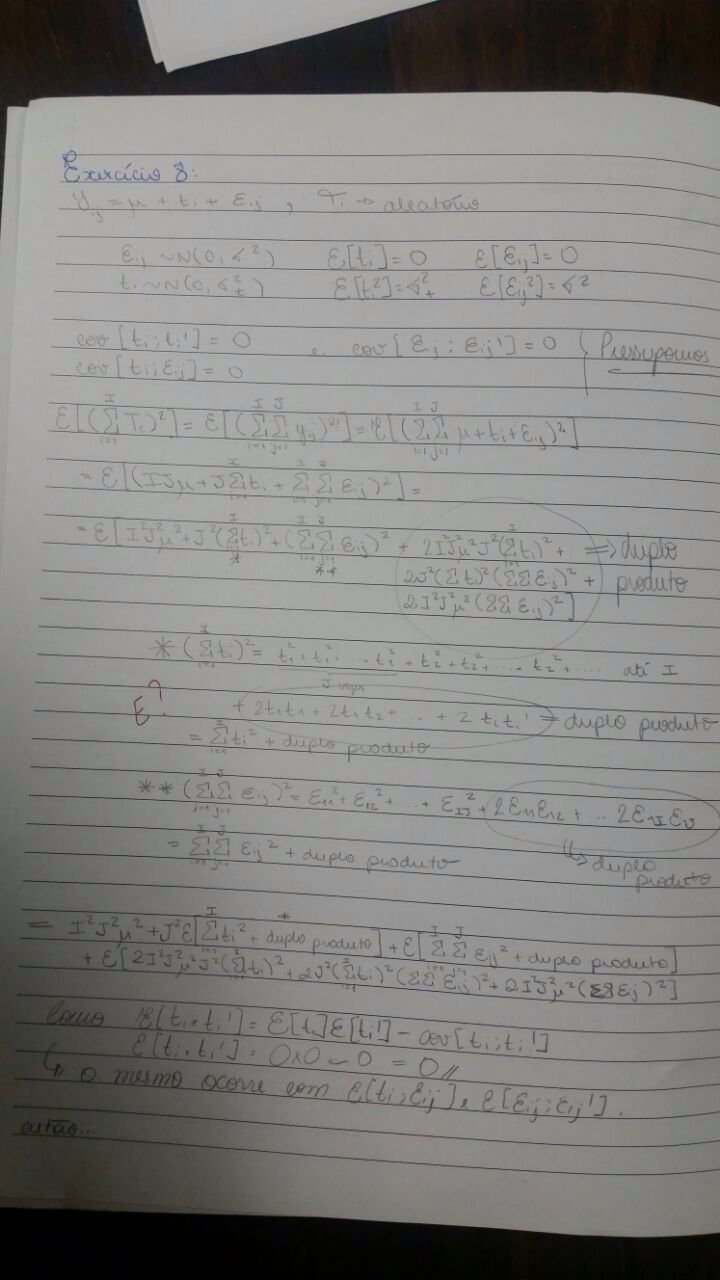 Exercício 8:
Y_ij = μ + ti + εij , Ti → aleatório
εij ~ N(0, σ²) E[ti] = 0 E[εij] = 0
ti ~ N(0, σ²t) E[ti²] = σ²t E[εij²] = σ²
cov[ti; ti'] = 0 e cov[εij; εij'] = 0 } Pressupomos
cov[ti; εij] = 0
E[(Σ(i=1..I) Ti)²] = E[(Σ(i=1..I) Σ(j=1..J) yij)²] = E[(Σ(i=1..I) Σ(j=1..J) μ + ti + εij)²]
= E[(IJμ + JΣ(i=1..I) ti + Σ(i=1..I) Σ(j=1..J) εij)²] =
= E[I²J²μ² + J²(Σ(i=1..I) ti)² + (Σ(i=1..I) Σ(j=1..J) εij)² + 2I²J²μ²J²(Σ(i=1..I) ti)² + ⇒ duplo
* **
2J²(Σti)²(ΣΣεij)² + produto
2I²J²μ²(ΣΣεij)²]
* (Σ(i=1..I) ti)² = t1² + t1² ... t1² + t2² + t2² + ... t2² + .... até I
J vezes
E?
+ 2t1t1 + 2t1t2 + ... + 2titi' → duplo produto
= Σ(i=1..I) ti² + duplo produto
** (Σ(i=1..I) Σ(j=1..J) εij)² = ε11² + ε12² + .... + εIJ² + 2ε11ε12 + ... 2εIJεIJ
↳ duplo produto
= Σ(i=1..I) Σ(j=1..J) εij² + duplo produto
= I²J²μ² + J²E[Σ(i=1..I) ti² + duplo produto] + E[Σ(i=1..I) Σ(j=1..J) εij² + duplo produto]
+ E[2I²J²μ²J²(Σ(i=1..I) ti)² + 2J²(Σ(i=1..I) ti)²(ΣΣ εij)² + 2I²J²μ²(ΣΣεij)²]
Como E[ti.ti'] = E[ti]E[ti'] - cov[ti; ti']
E[ti.ti'] = 0x0 - 0 = 0//
↳ o mesmo ocorre com E[ti; εij] e E[εij; εij'].
então...